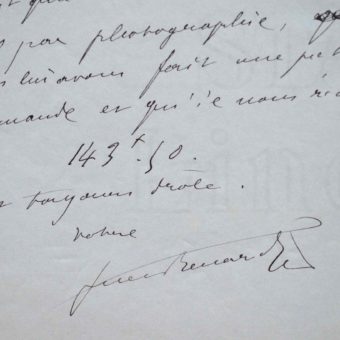 par photographie,
lui avons fait une pet
mande et qu'ie nous ré
143 f. 50.
toujours drôle.
Votre
Jules Renard